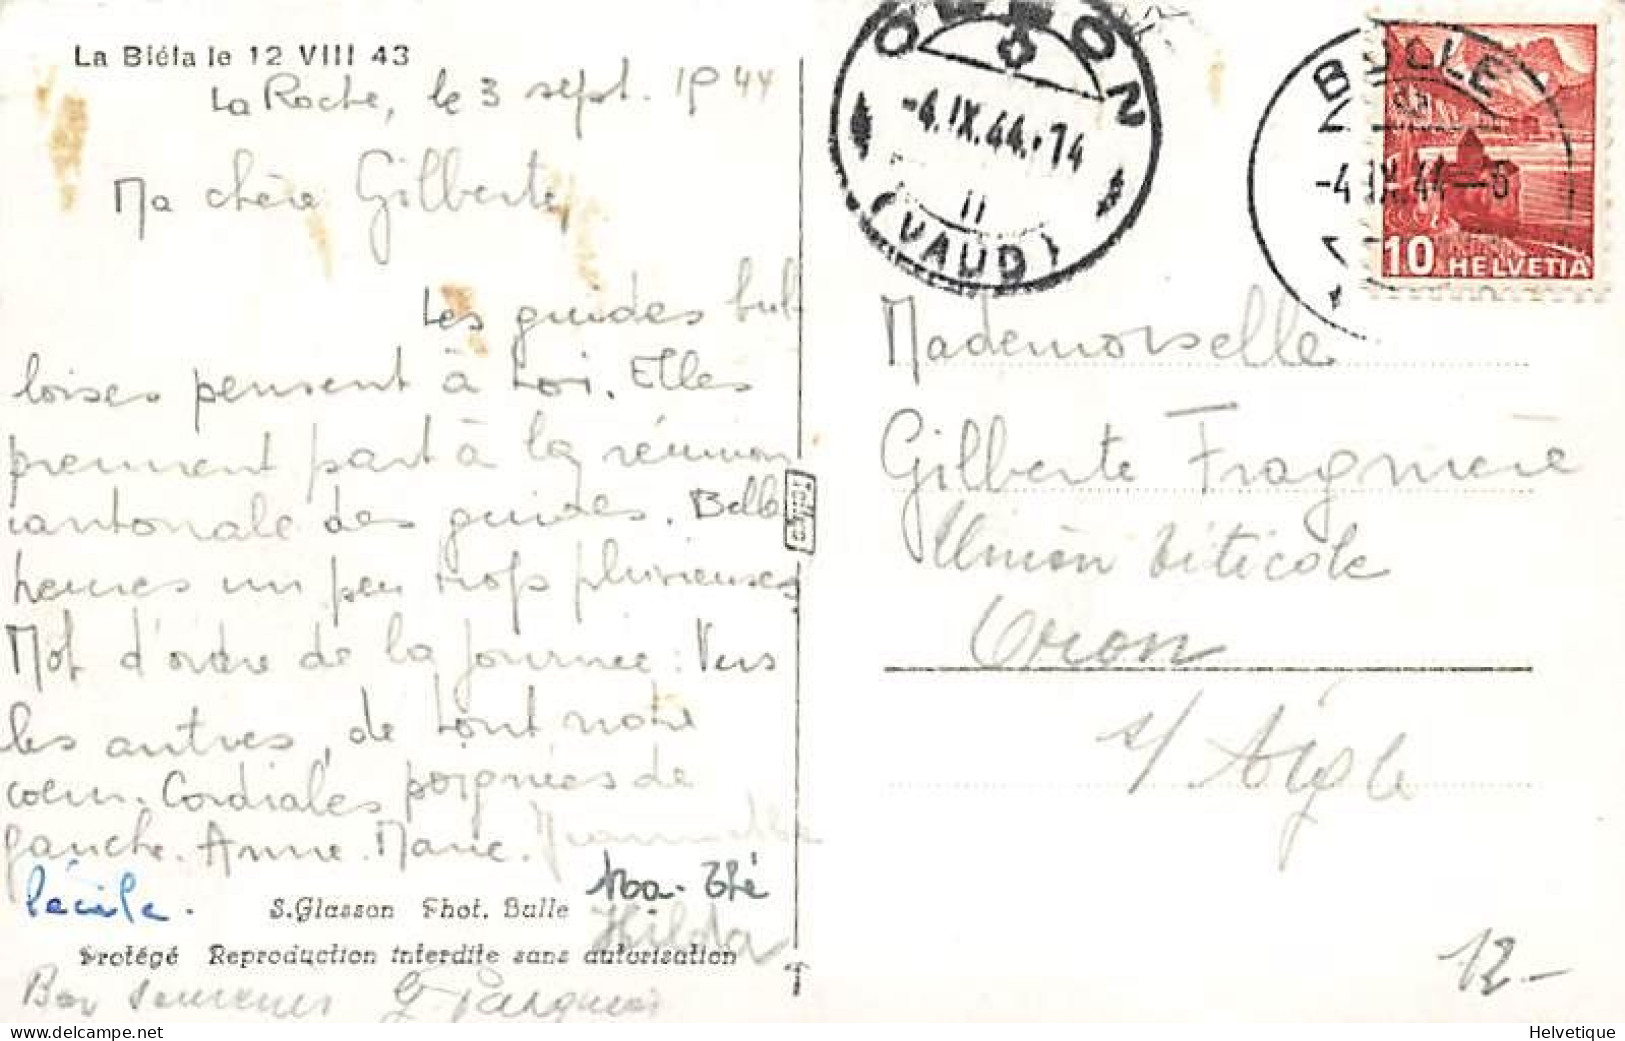 La Bléla le 12 VIII 43
La Roche, le 3 sept. 1944
Ma chère Gilberte,
Les guides bul-
loises pensent à toi. Elles
prennent part à la réunion
cantonale des guides. Belles
heures un peu trop pluvieuses.
Mot d'ordre de la journée : Vers
les autres, de tout notre
coeur. Cordiales poignées de
gauche. Anne-Marie.
Cécile.
Hilda
S. Glasson Phot. Bulle
Protégé Reproduction interdite sans autorisation
Bon souvenir G.
OLLON
-4.IX.44.-14
11
(VAUD)
BULLE
-4.IX.44-6
10 HELVETIA
Mademoiselle
Gilberte Fragnière
Union Viticole
s/ Aigle
12.-
Helvetique